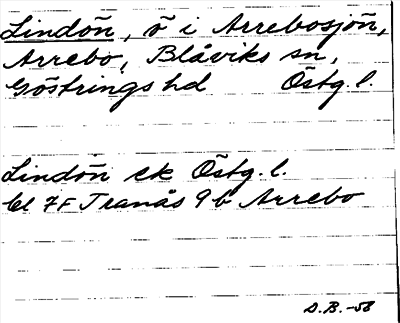 Lindön, ö i Arrebosjön,
Arrebo, Blåviks sn,
Göstrings hd Östg. l.
Lindön ek Östg. l.
bl 7F Tranås 9 b Arrebo
D.B. -58